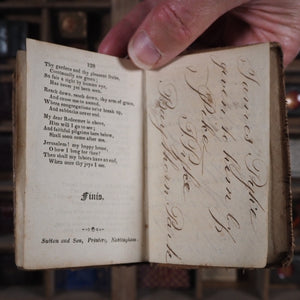 120
Thy gardens and thy pleasant fruits,
Continually are green;
So rare a sight by human eye,
Has never yet been seen.
Reach down, reach down, thy arm of grace,
And cause me to ascend
Where congregations ne'er break up,
And sabbaths never end.
My dear Redeemer is above,
Him will I go to see;
And faithful pilgrims here below,
Shall soon come after me.
Jerusalem! my happy home,
O how I long for thee!
Then shall my labors have an end,
When once thy joys I see.
Finis.
Sutton and Son, Printers, Nottingham.
James Pyke
given to him by
J Pyke